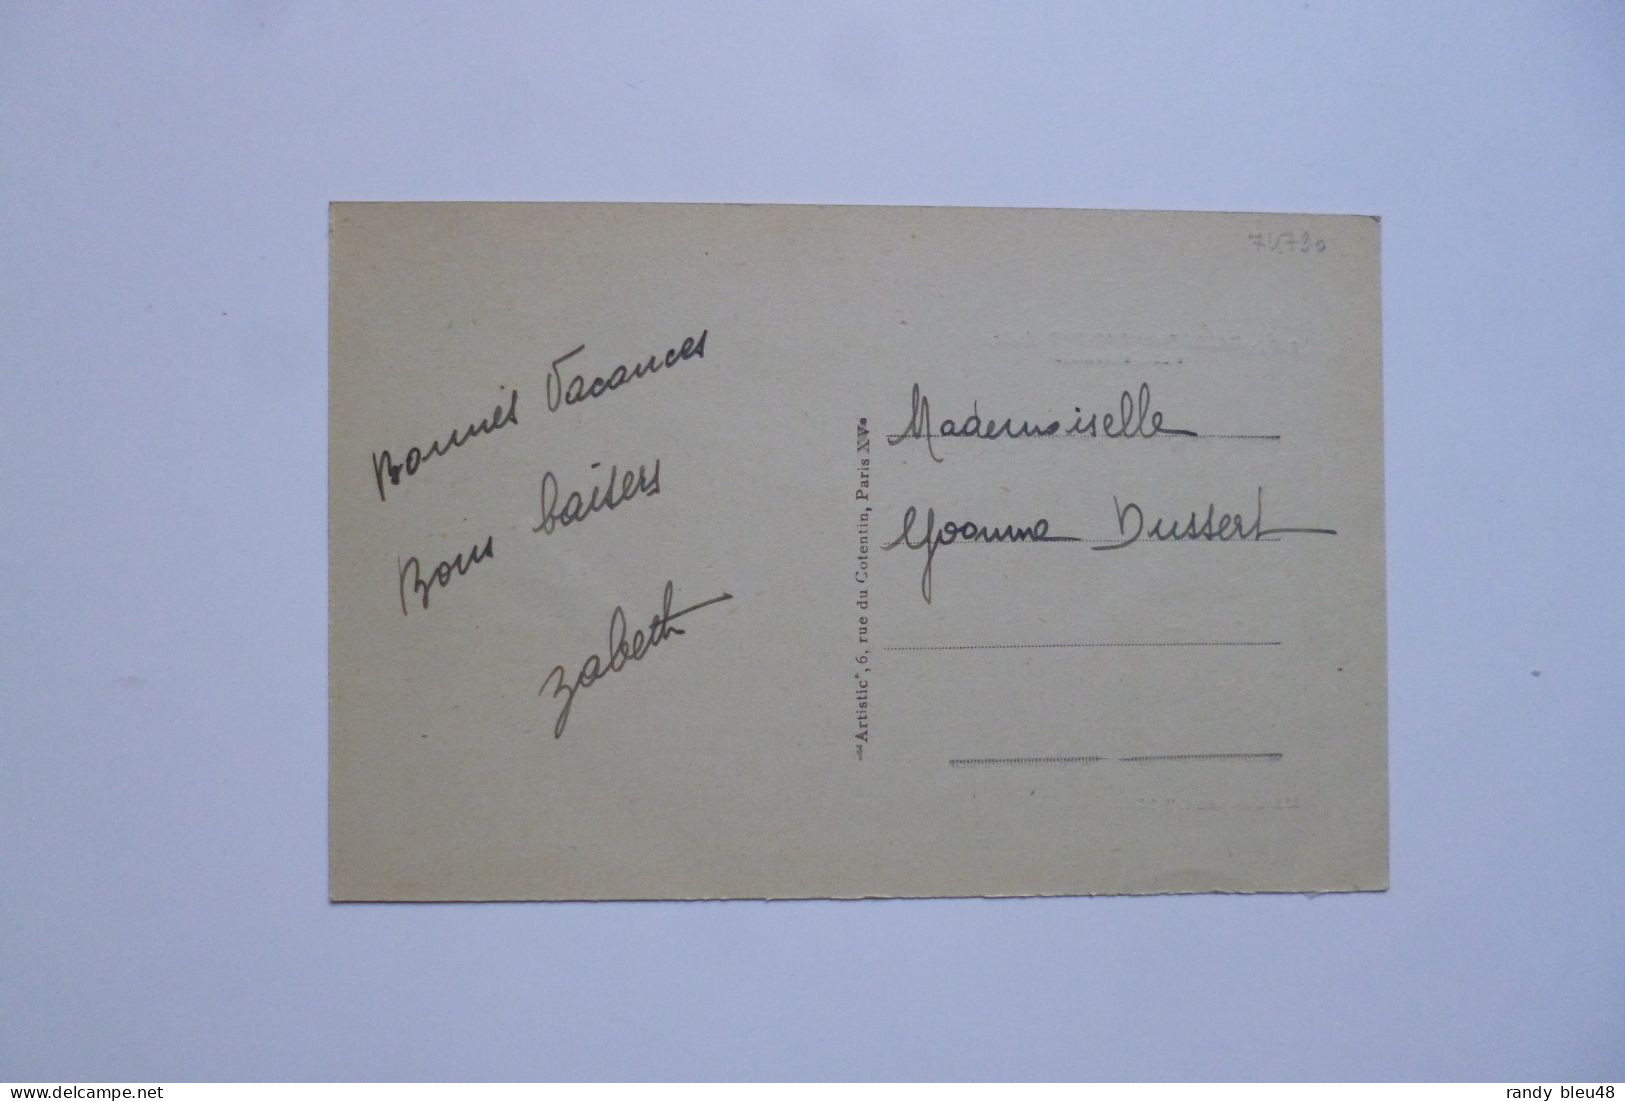 Bonnes Vacances
Bons baisers
Zabeth
"Artistic", 6, rue du Cotentin, Paris XVe
Mademoiselle
Yvonne Dussert
randy bleu48